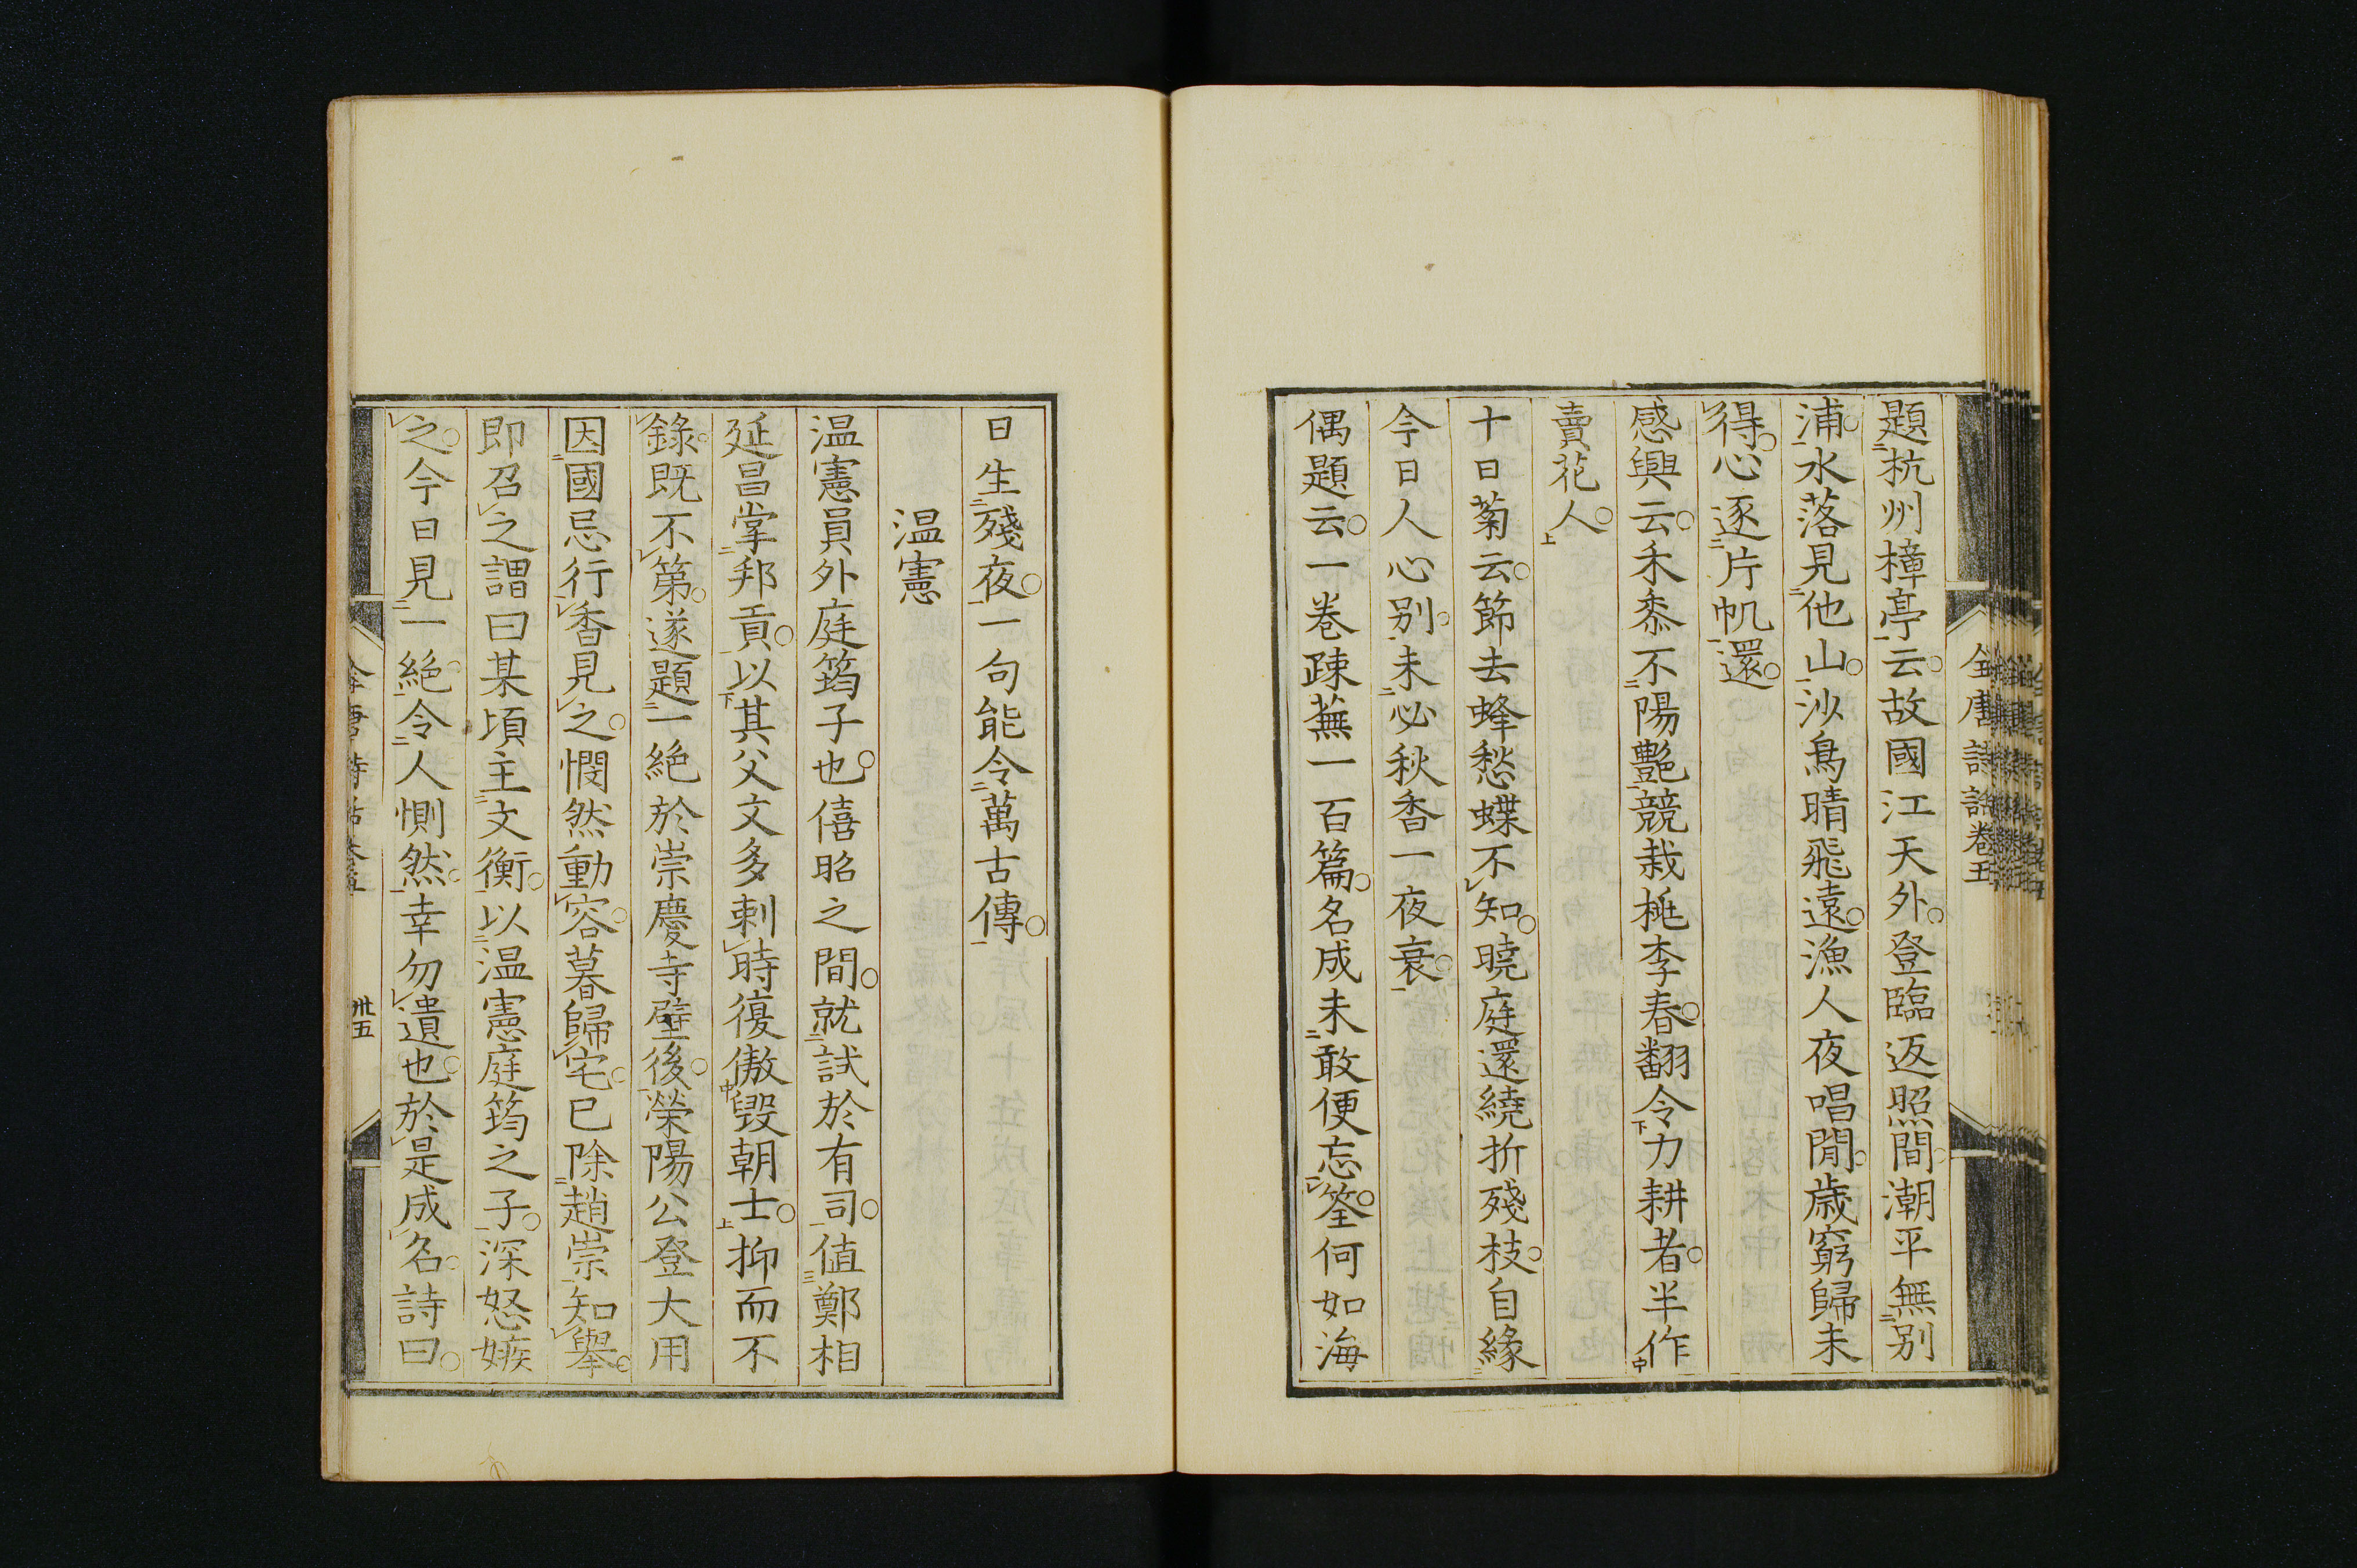 題杭州樟亭云故國江天外登臨返照間潮平無別
浦水落見他山沙鳥晴飛遠漁人夜唱閒歳窮歸未
得心逐片帆還
感興云禾黍不陽艶競栽桃李春翻令力耕者半作
賣花人
十日菊云節去蜂愁蝶不知曉庭還繞折殘枝自緣
今日人心別未必秋香一夜衰
偶題云一卷疎蕪一百篇名成未敢便忘筌何如海
全唐詩話卷五
日生殘夜一句能令萬古傳
温憲
温憲員外庭筠子也僖昭之間就試於有司值鄭相
延昌掌邦貢以其父文多刺時復傲毀朝士抑而不
錄既不第遂題一絶於崇慶寺壁後滎陽公登大用
因國忌行香見之憫然動容暮歸宅已除趙崇知舉
即召之謂曰某頃主文衡以温憲庭筠之子深怒嫉
之今日見一絶令人惻然幸勿遺也於是成名詩曰
全唐詩話卷五
卅五